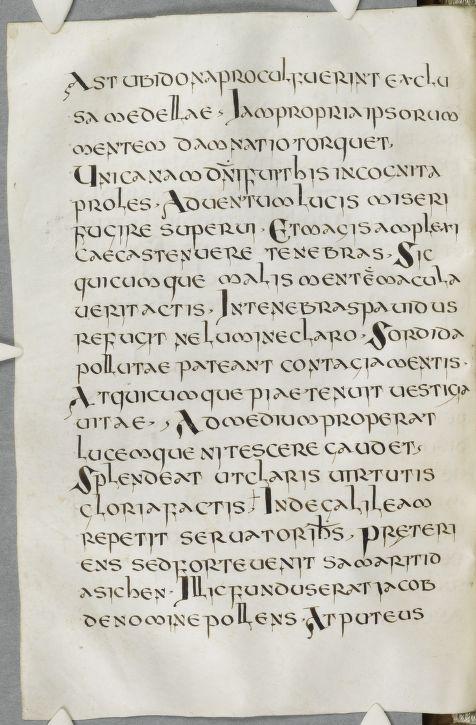 AST UBIDONAPROCULFUERINT EXCLU
SA MEDELLAE· IAMPROPRIAIPSORUM
MENTEM DAMNATIOTORQUET·
UNICANAM DÑIFUITHIS INCOGNITA
PROLES· ADUENTUMLUCIS MISERI
FUGIRE SUPERUI· ETMAGISAMPLEXI
CAECASTENUERE TENEBRAS· SIC
QUICUMQUE MALIS MENTĒMACULA
UERITACTIS· INTENEBRASPAUIDUS
REFUGIT NELUMINECLARO· SORDIDA
POLLUTAE PATEANT CONTAGIAMENTIS·
ATQUICUMQUE PIAETENUIT UESTIGIA
UITAE· ADMEDIUMPROPERAT
LUCEMQUE NITESCERE GAUDET·
SPLENDEAT UTCLARIS UIRTUTIS
GLORIAFACTIS† INDEGALILEAM
REPETIT SERUATORIH̄S· PRETERI
ENS SEDFORTEUENIT SAMARITID
ASICHEN· ILLICFUNDUSERATIACOB
DENOMINEPOLLENS· ATPUTEUS